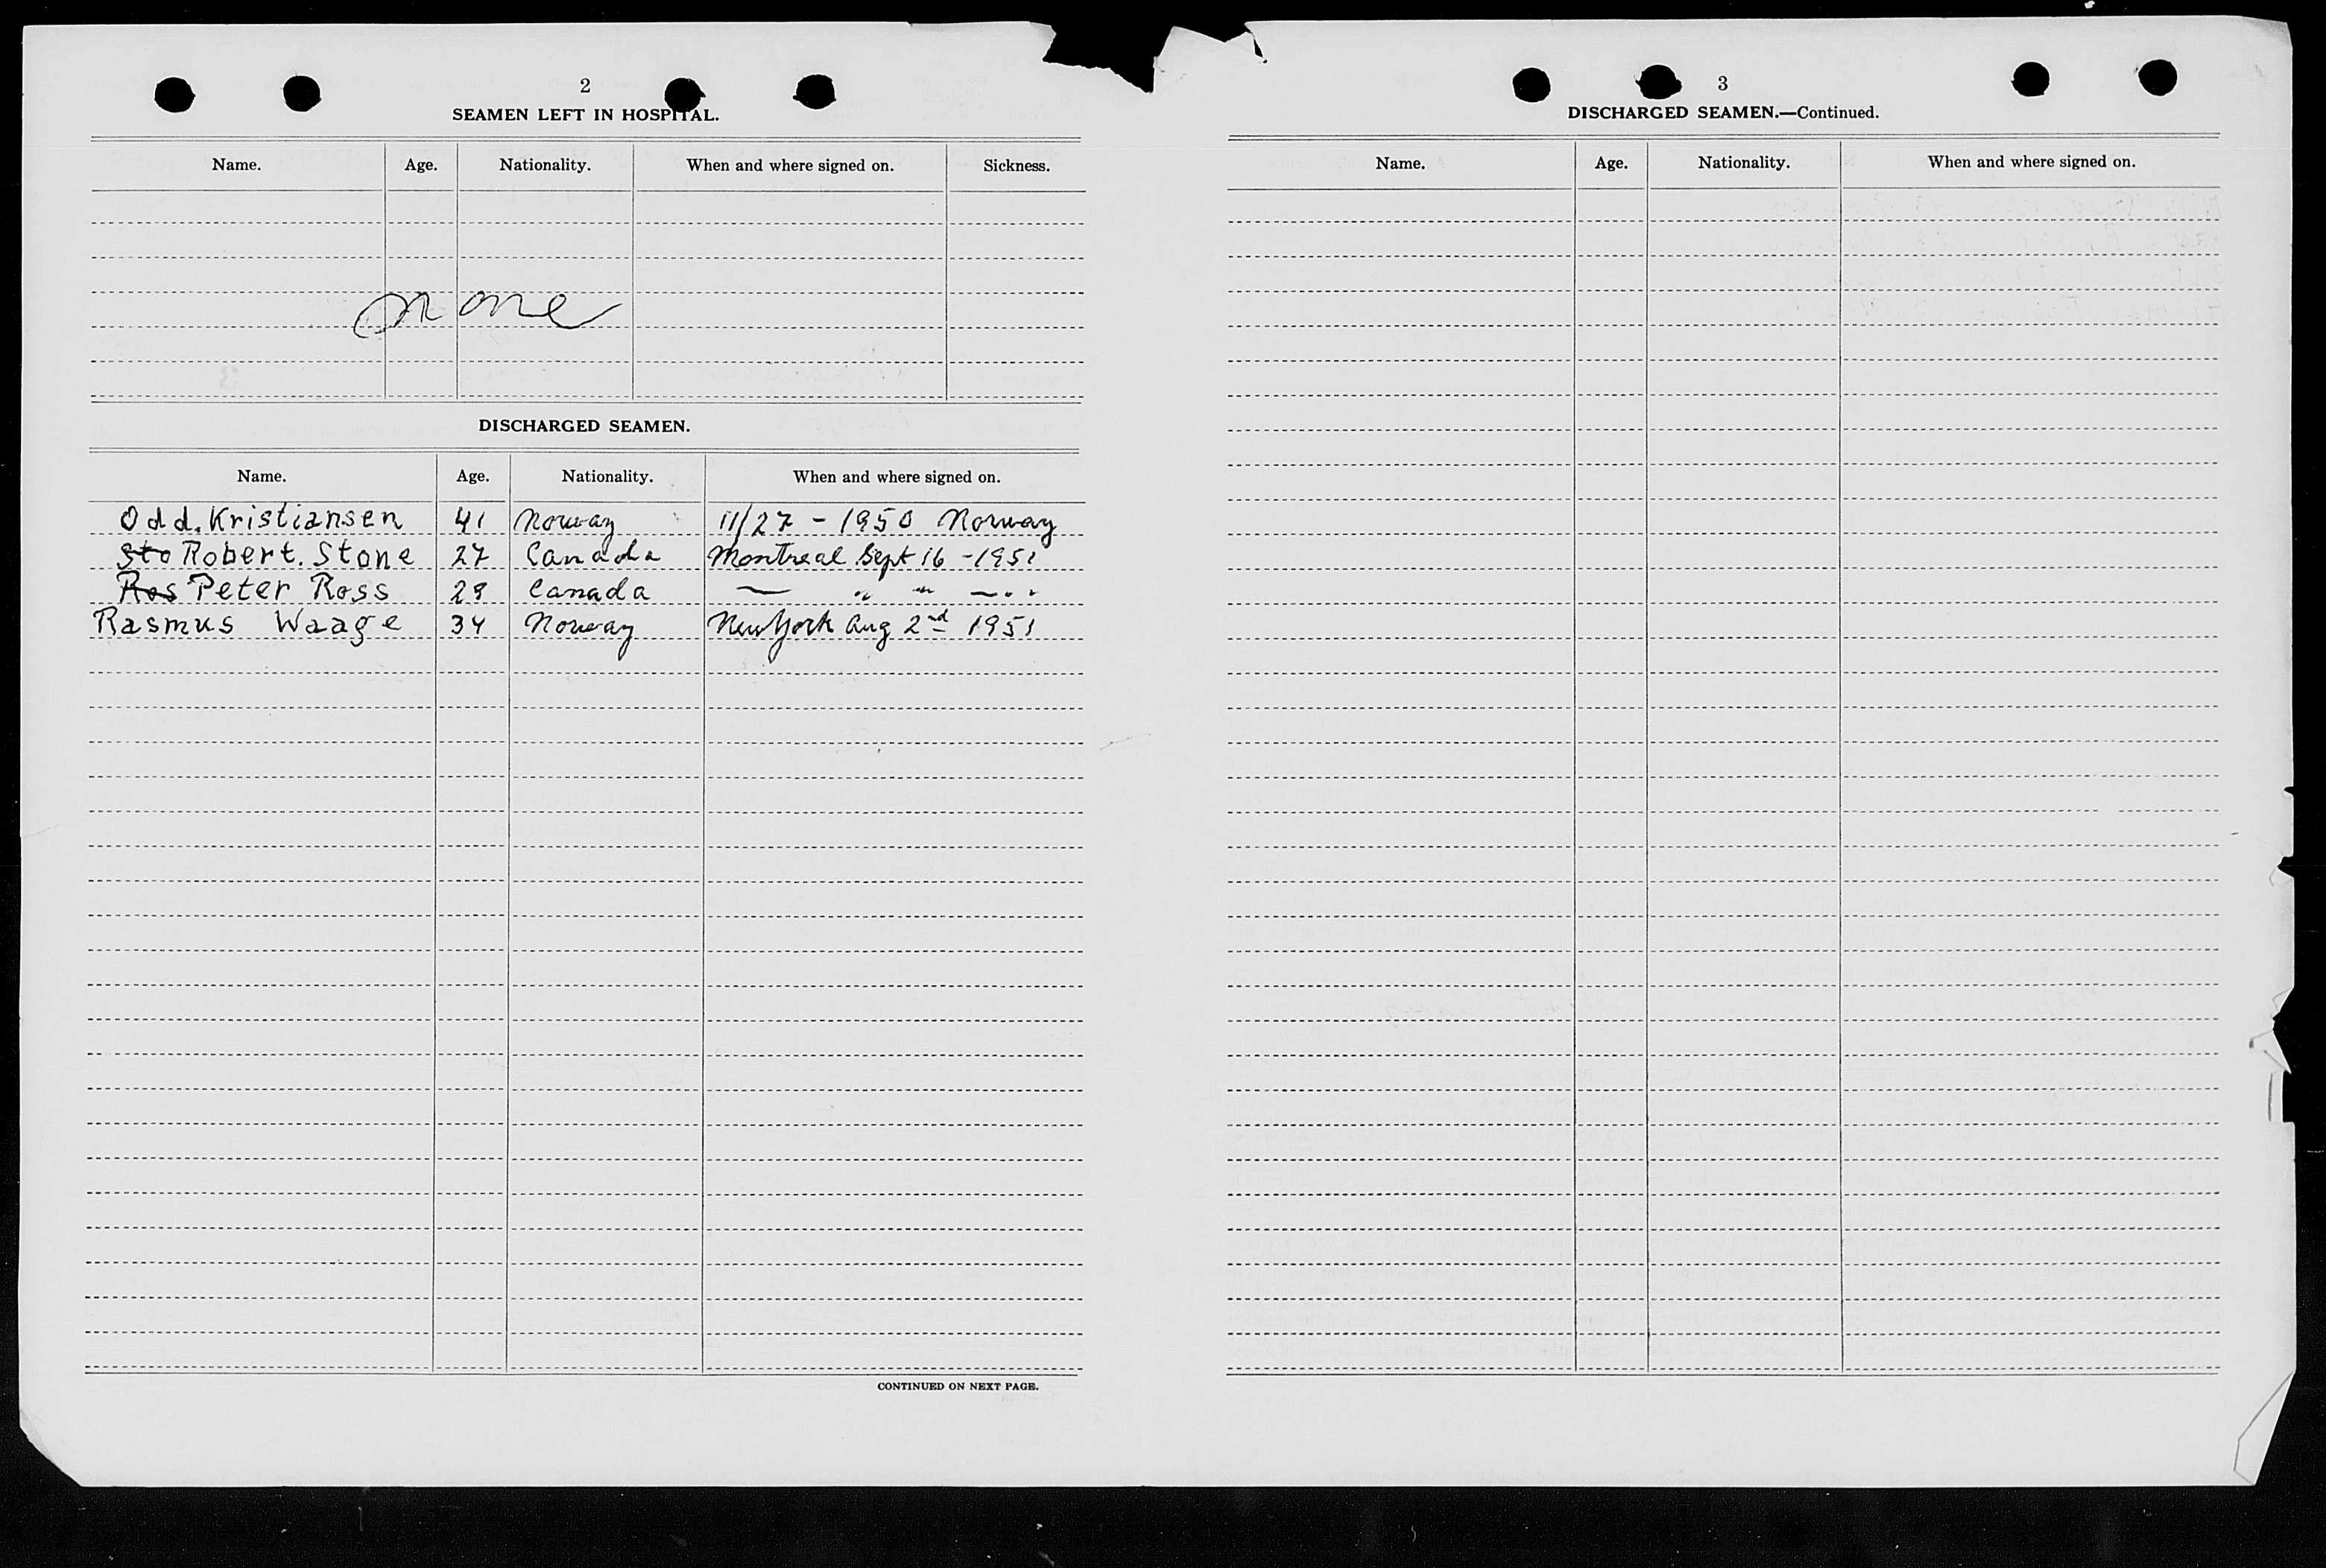 2
SEAMEN LEFT IN HOSPITAL.
Name. Age. Nationality. When and where signed on. Sickness.
none
DISCHARGED SEAMEN.
Name. Age. Nationality. When and where signed on.
Odd. Kristiansen 41 Norway 11/27 - 1950 Norway
Sto Robert. Stone 27 Canada Montreal Sept 16 - 1951
Ros Peter Ross 29 Canada — " " — " "
Rasmus Waage 34 Norway New York Aug 2nd 1951
CONTINUED ON NEXT PAGE.
3
DISCHARGED SEAMEN.—Continued.
Name. Age. Nationality. When and where signed on.